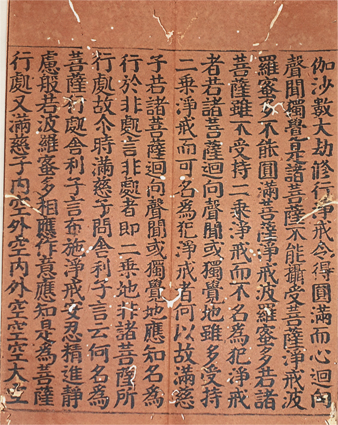 伽沙數大劫修行淨戒令得圓滿而心迴向
聲聞獨覺是諸菩薩不能攝受菩薩淨戒波
羅蜜多不能圓滿菩薩淨戒波羅蜜多若諸
菩薩雖不受持二乘淨戒而不名為犯淨戒
者若諸菩薩迴向聲聞或獨覺地雖多受持
二乘淨戒而可名為犯淨戒者何以故滿慈
子若諸菩薩迴向聲聞或獨覺地應知名為
行於非處言非處者即二乘地非諸菩薩所
行處故尒時滿慈子問舍利子言云何名為
菩薩行處舍利子言布施淨戒安忍精進靜
慮般若波羅蜜多相應作意應知是為菩薩
行處又滿慈子內空外空內外空空空大空